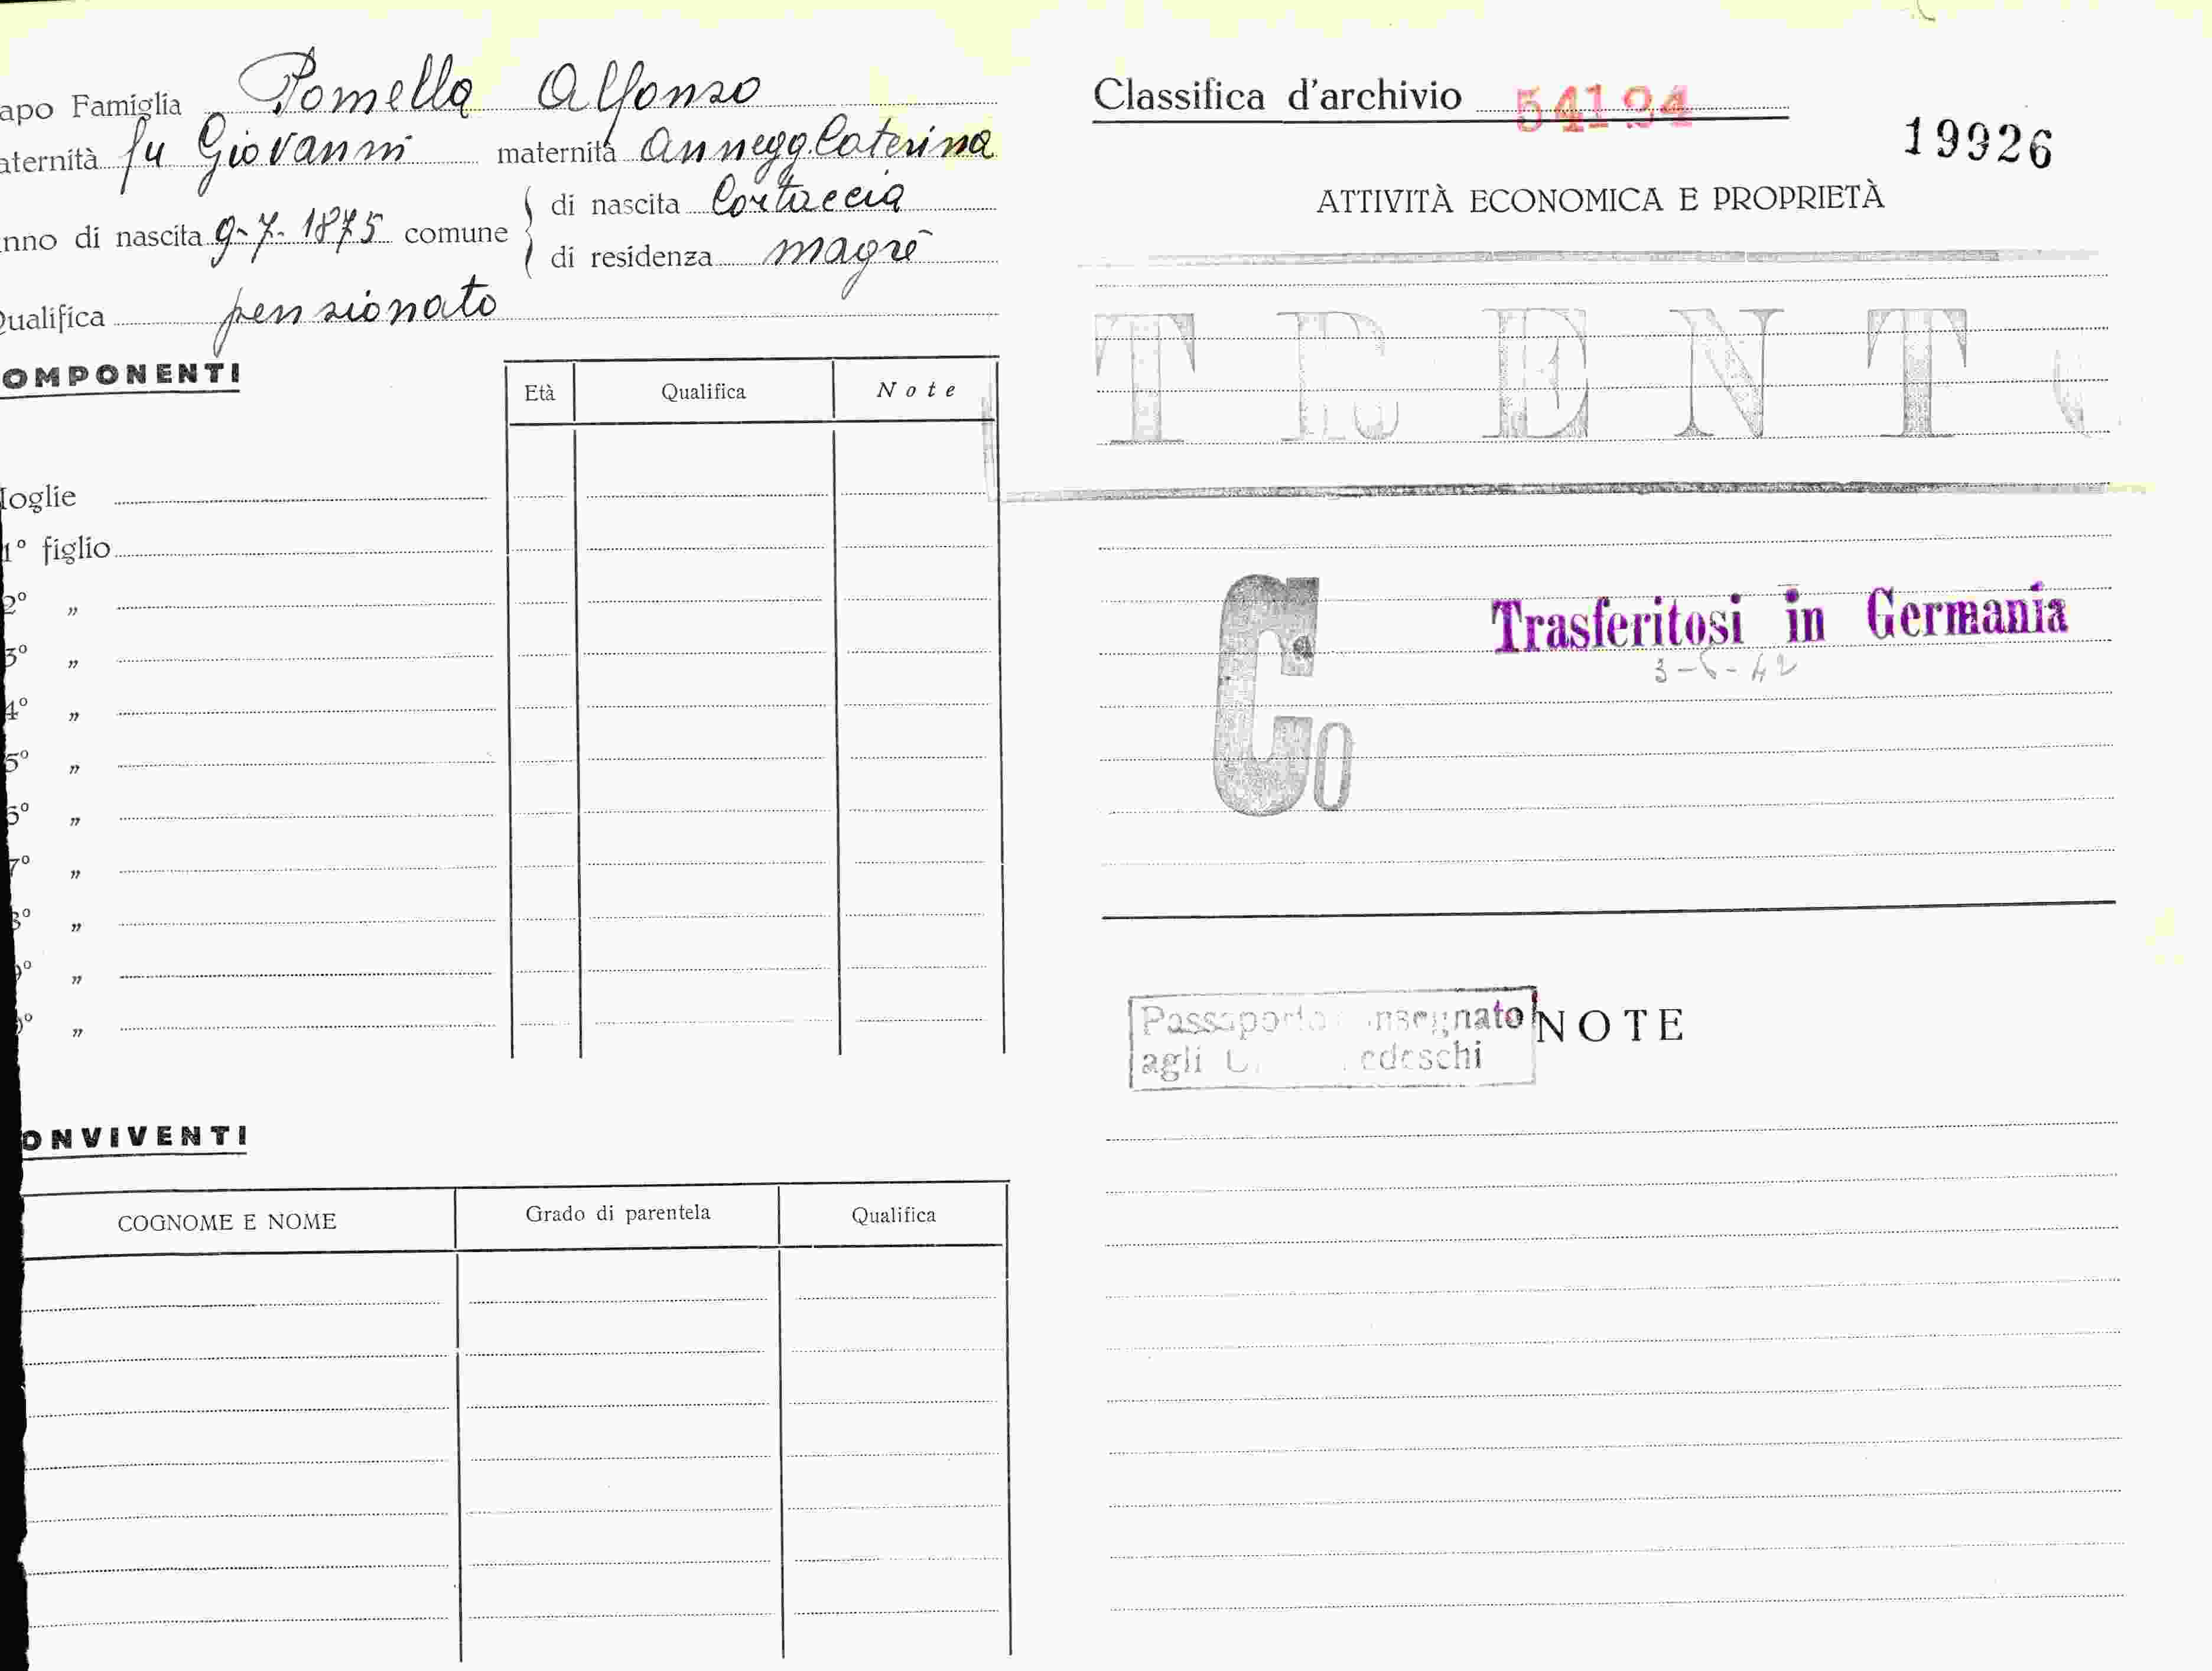 apo Famiglia Pomella Alfonso
aternità fu Giovanni maternità Annegg Caterina
nno di nascita 9-7-1875 comune di nascita Cortaccia
di residenza magrè
Qualifica pensionato
OMPONENTI
Età Qualifica Note
oglie
1º figlio
2º „
3º „
4º „
5º „
6º „
7º „
8º „
9º „
0º „
ONVIVENTI
COGNOME E NOME Grado di parentela Qualifica
Classifica d'archivio 54194
19926
ATTIVITÀ ECONOMICA E PROPRIETÀ
TRENTO
Co
Trasferitosi in Germania
3-6-42
Passaporto nsegnato
agli edeschi
NOTE